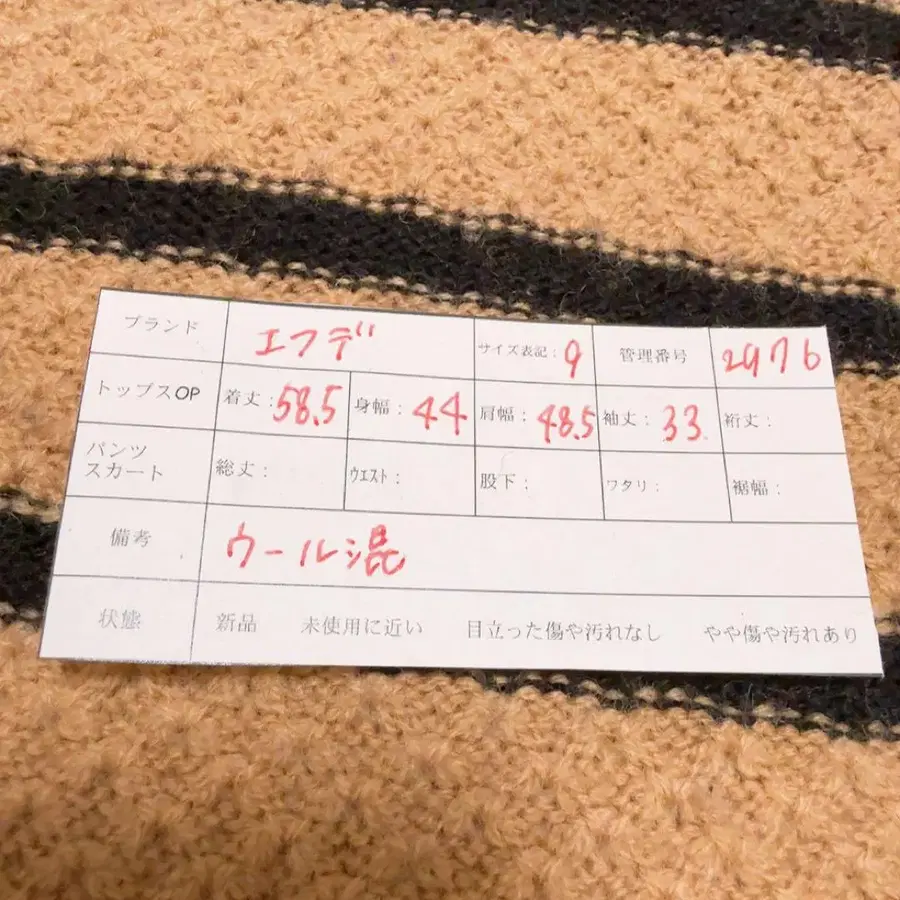 ブランド エフデ サイズ表記: 9 管理番号 2976
トップスOP 着丈: 58.5 身幅: 44 肩幅: 48.5 袖丈: 33 裄丈:
パンツ
スカート 総丈: ウエスト: 股下: ワタリ: 裾幅:
備考 ウール混
状態 新品 未使用に近い 目立った傷や汚れなし やや傷や汚れあり